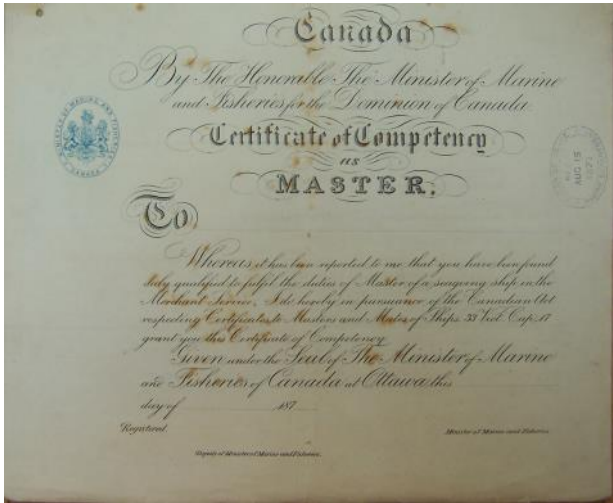 Canada
By The Honorable The Minister of Marine
and Fisheries for the Dominion of Canada
Certificate of Competency
as
MASTER.
To
Whereas it has been reported to me that you have been found
duly qualified to fulfil the duties of Master of a seagoing ship in the
Merchant Service, I do hereby in pursuance of the Canadian Act
respecting Certificates to Masters and Mates of Ships 33 Vict. Cap. 17
grant you this Certificate of Competency
Given under the Seal of The Minister of Marine
and Fisheries of Canada at Ottawa this
day of 187
Registered.
Minister of Marine and Fisheries
Deputy of Minister of Marine and Fisheries.
AUG 15